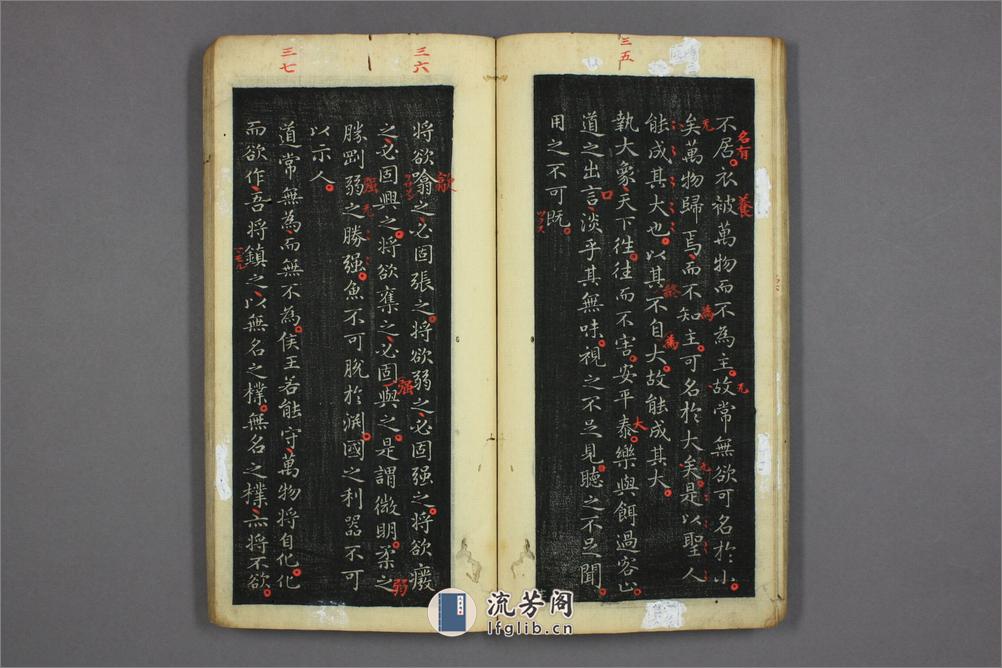 三五
不居衣被萬物而不為主故常無欲可名於小
名有
養
无
矣萬物歸焉而不知主可名於大矣是以聖人
无
為
能成其大也以其不自大故能成其大
終
為
執大象天下往往而不害安平泰樂與餌過客止
大
道之出言淡乎其無味視之不足見聽之不足聞
口
用之不可既
ツクス
三六
將欲噏之必固張之將欲弱之必固强之將欲廢
歙
之必固興之將欲奪之必固與之是謂微明柔之
強
弱
勝剛弱之勝强魚不可脫於淵國之利器不可
强
以示人
三七
道常無為而無不為侯王若能守萬物將自化化
而欲作吾將鎮之以無名之樸無名之樸亦將不欲
流芳阁
lfglib.cn